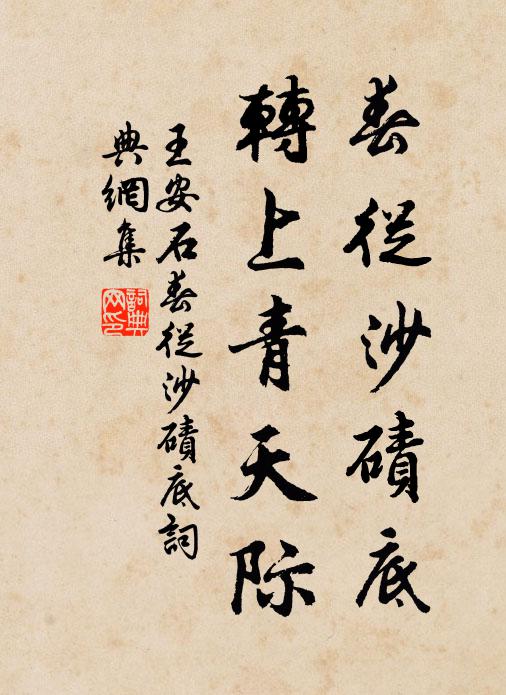 春從沙磧底
轉上青天际
王安石春從沙磧底詞
典網集
詞典网印